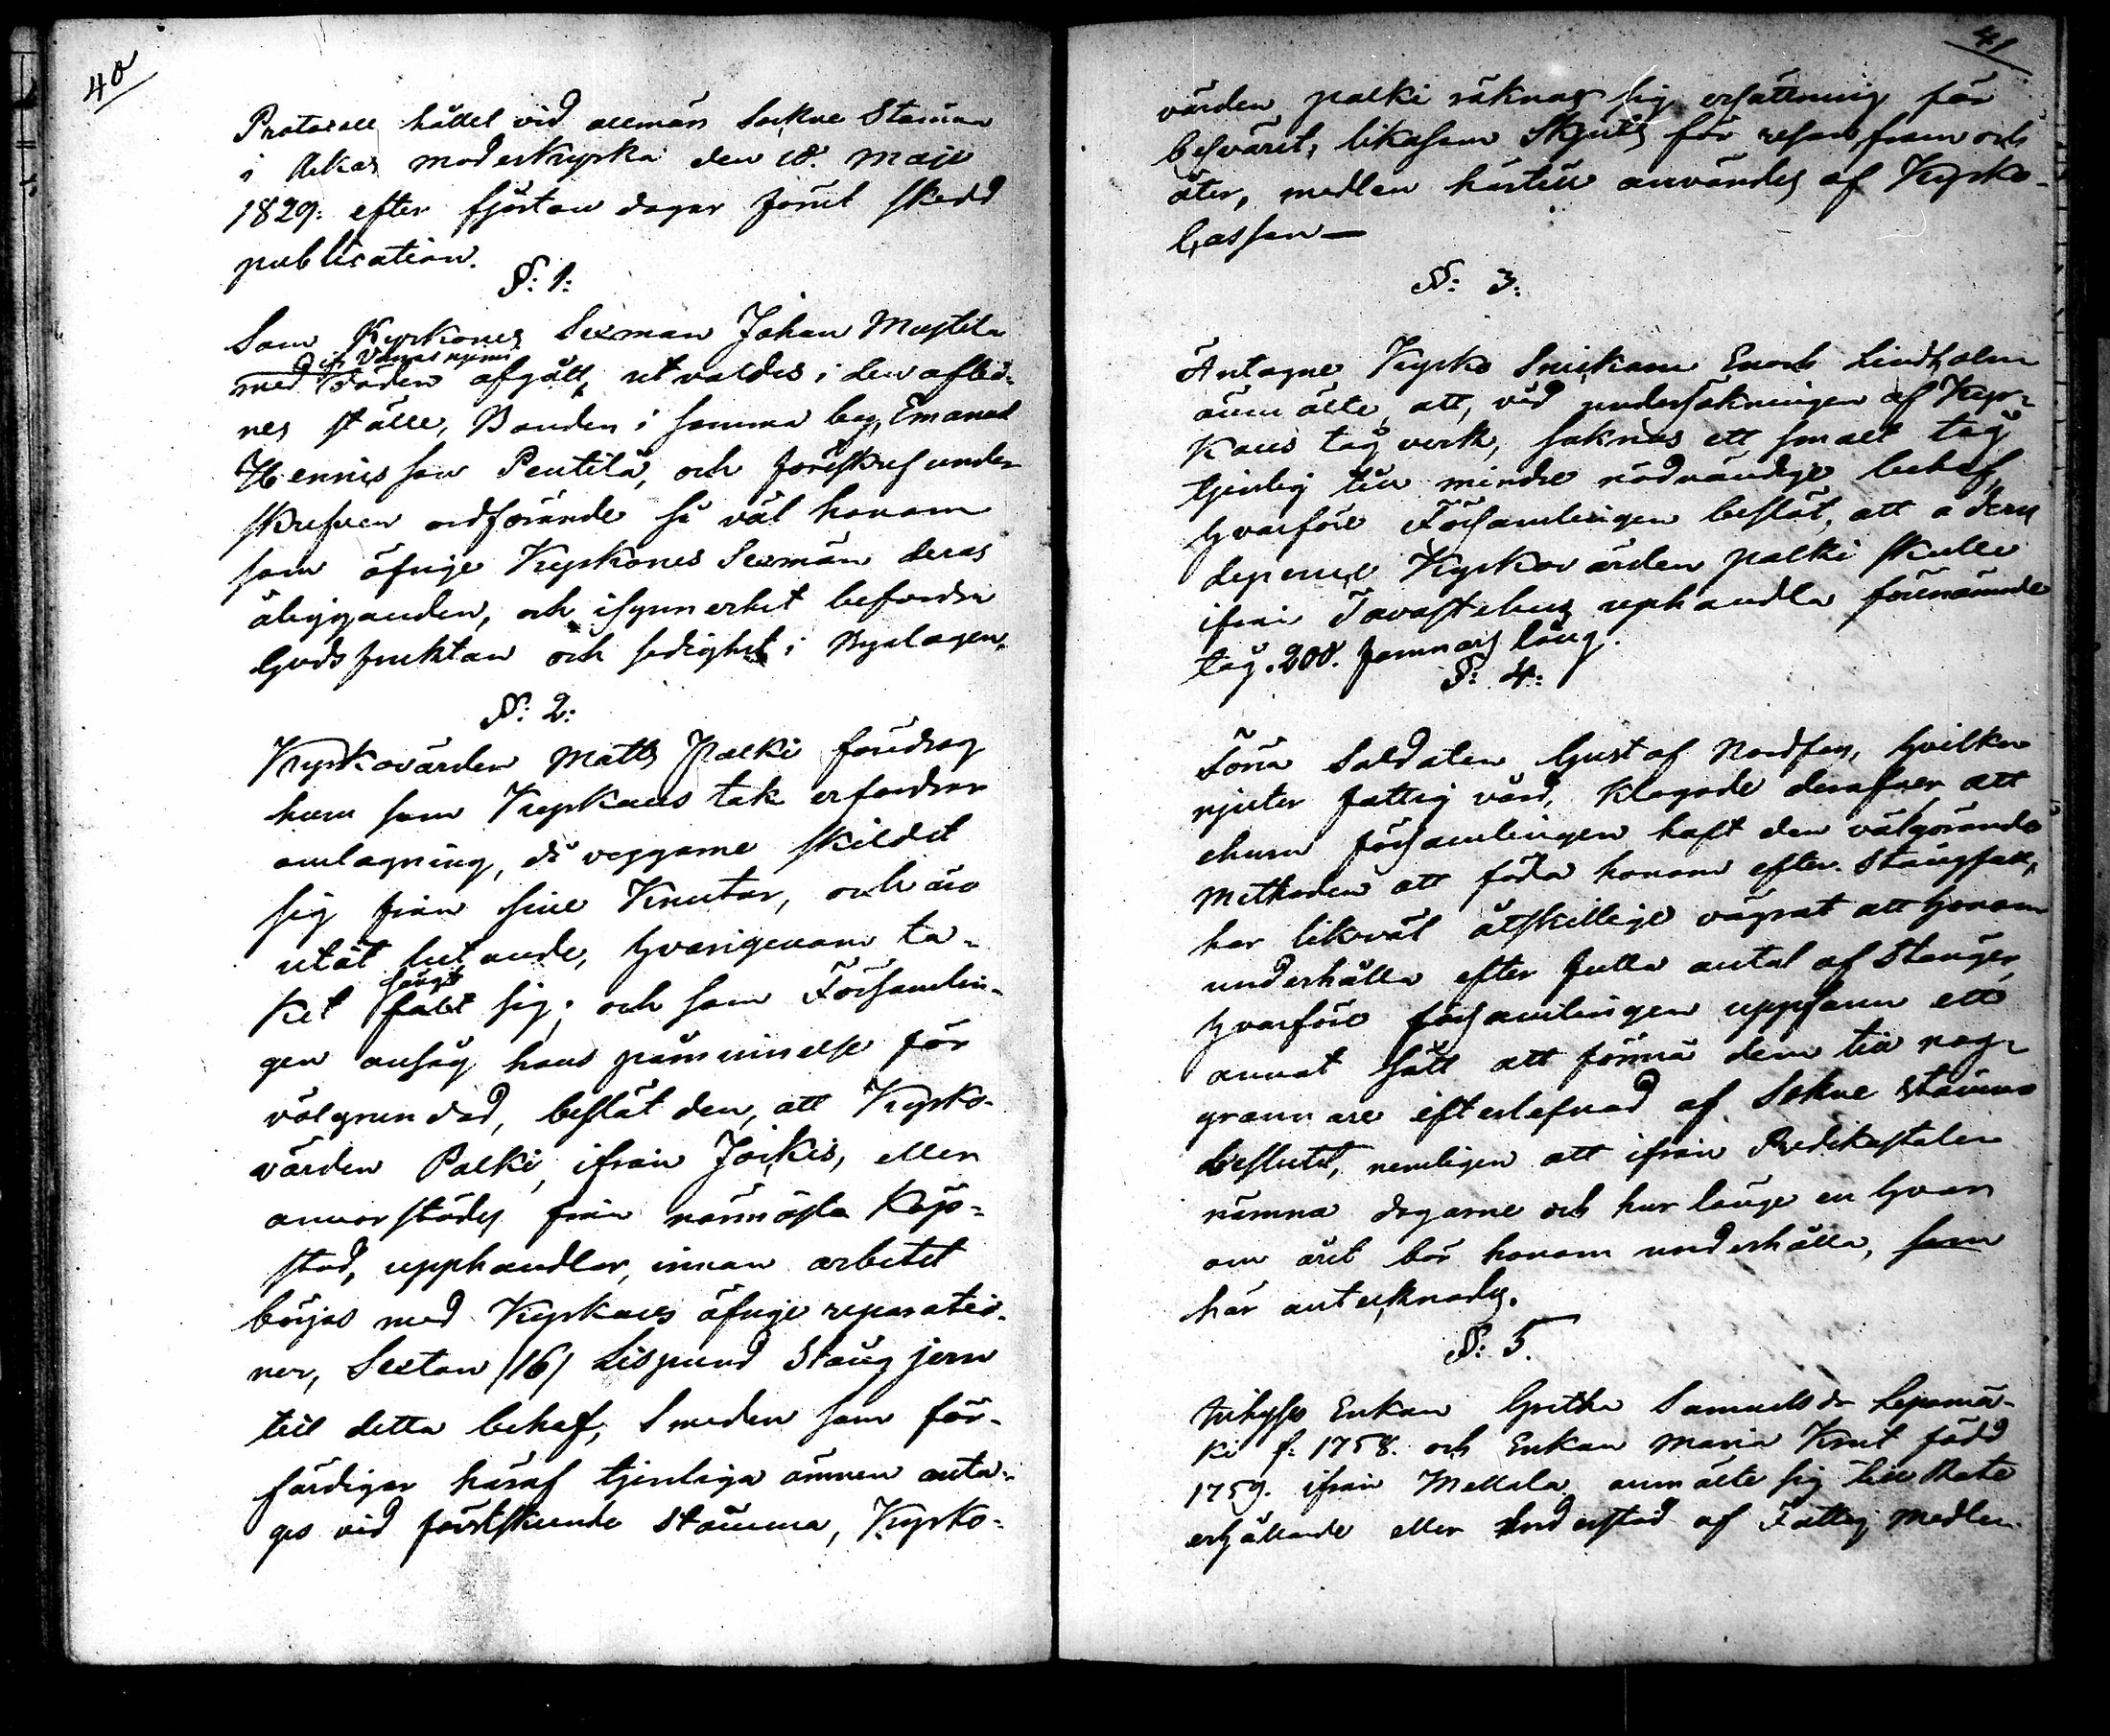 40
Protocoll hållet vid allmän Sockne Stämma
i Ackas moderkyrka den 18. Maji
1829: efter fjorton dagar förut skedd
publication.
§: 1:
Som Kyrkones Sexman Johan Mustila
med döden afgått, utvaldes i den aflid-
nes ställe, Bonden i samma by, Emanuel
Hennisson Pentilä, och föreskref under-
skrefven ordförande så väl honom
som öfrige Kyrkones Sexmän deras
åligganden, och isynnerhet befordra
Gudsfruktan och sedighet i Byalagen.
§: 2:
Kyrkovärden Matts Palki föredrog
hum som Kyrkans tak erfordrar
omlagning, då veggarne skildt
sig från sine Knutar, och äro
utåt lutande, hvarigenom ta-
sängt
ket fält sig; och som Församlin-
gen ansåg hans påminnelse för
välgrundad, beslöt den, att Kyrko-
värden Palki, ifrån Jockis, eller
annorstädes från närmaste Köp-
stad, upphandlar, innan arbetet
börjas med Kyrkans öfrige reparatio-
ner, Sexton /16/ Lispund Stång jern
till detta behof, Smeden som för-
färdigar häraf tjenliga ämnen anta-
ges vid förstskeende Stämma, Kyrko-
41
värden palki räknar sig ersättning för
besväret, likasom Skjuts för resan fram och
åter, medlen härtill användes af Kyrko-
Cassan —
§: 3:
Antagne Kyrko Snickare Enoch Lindholm
anmälte, att, vid undersökningen af Kyr-
kans tågverk, saknas ett smalt tåg
tjenlig till mindre nödvändige behof,
hvarföre Församlingen beslöt, att
Kyrkovärden palki skulle
ifrån Tavastehus uphandla förenämnde
tåg. 200. famnars lång.
§: 4:
Förra Soldaten Gustaf Nordfors, hvilken
njuter fattig vård, klagade deröfver, att
ehuru församlingen haft den välgörande
Methoden att föda honom efter Stångfall,
har likväl åtskillige vägrat att honom
underhålla efter fulla antal af Stänger,
hvarföre församlingen uppfann ett
annat sätt att förmå dem till nog-
grannare efterlefnad af Sokne Stämmo
beslutet, nemligen att ifrån Predikestolen
nämna dagarne och hur länge en hvar
om året bör honom underhålla, som
här antecknades.
§: 5.
Inhyses Enkan Gretha Samuelsdr Lepamä-
ki f: 1758. och Enkan Maria Knut född
1759. ifrån Mellola anmälte sig till Rote
erhållande eller understöd af Fattig Medlen